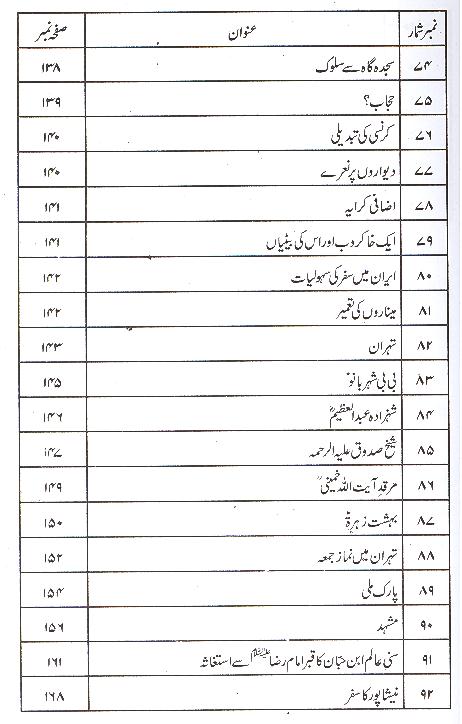 نمبر شمار عنوان صفحہ نمبر
۷۴ سجدہ گاہ سے سلوک ۱۳۸
۷۵ حجاب؟ ۱۳۹
۷۶ کرنسی کی تبدیلی ۱۴۰
۷۷ دیواروں پر نعرے ۱۴۰
۷۸ اضافی کرایہ ۱۴۱
۷۹ ایک خاکروب اور اس کی بیٹیاں ۱۴۱
۸۰ ایران میں سفر کی سہولیات ۱۴۲
۸۱ میناروں کی تعمیر ۱۴۲
۸۲ تہران ۱۴۳
۸۳ بی بی شہر بانو ۱۴۵
۸۴ شہزادہ عبدالعظیمؒ ۱۴۶
۸۵ شیخ صدوق علیہ الرحمہ ۱۴۷
۸۶ مرقد آیت اللہ خمینیؒ ۱۴۹
۸۷ بہشت زہرۃؑ ۱۵۰
۸۸ تہران میں نماز جمعہ ۱۵۲
۸۹ پارک ملی ۱۵۴
۹۰ مشہد ۱۵۶
۹۱ سنی عالم ابن حبّان کا قبر امام رضا علیہ السلام سے استغاثہ ۱۶۱
۹۲ نیشاپور کا سفر ۱۶۸